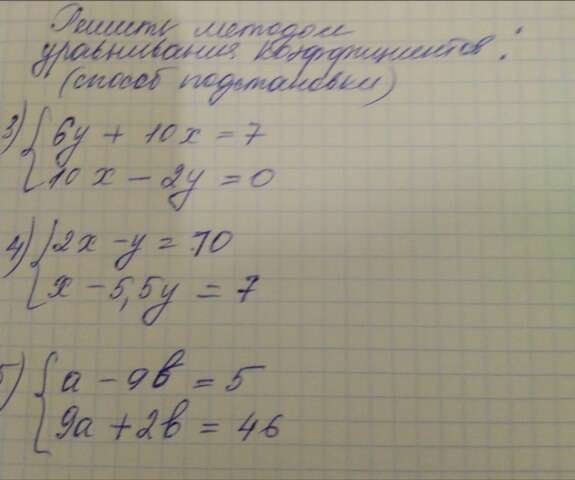 Решить методом
уравнивания коэффициентов:
(способ подстановки)
3) { 6y + 10x = 7
10x - 2y = 0
4) { 2x - y = 10
x - 5,5y = 7
5) { a - 9b = 5
9a + 2b = 46